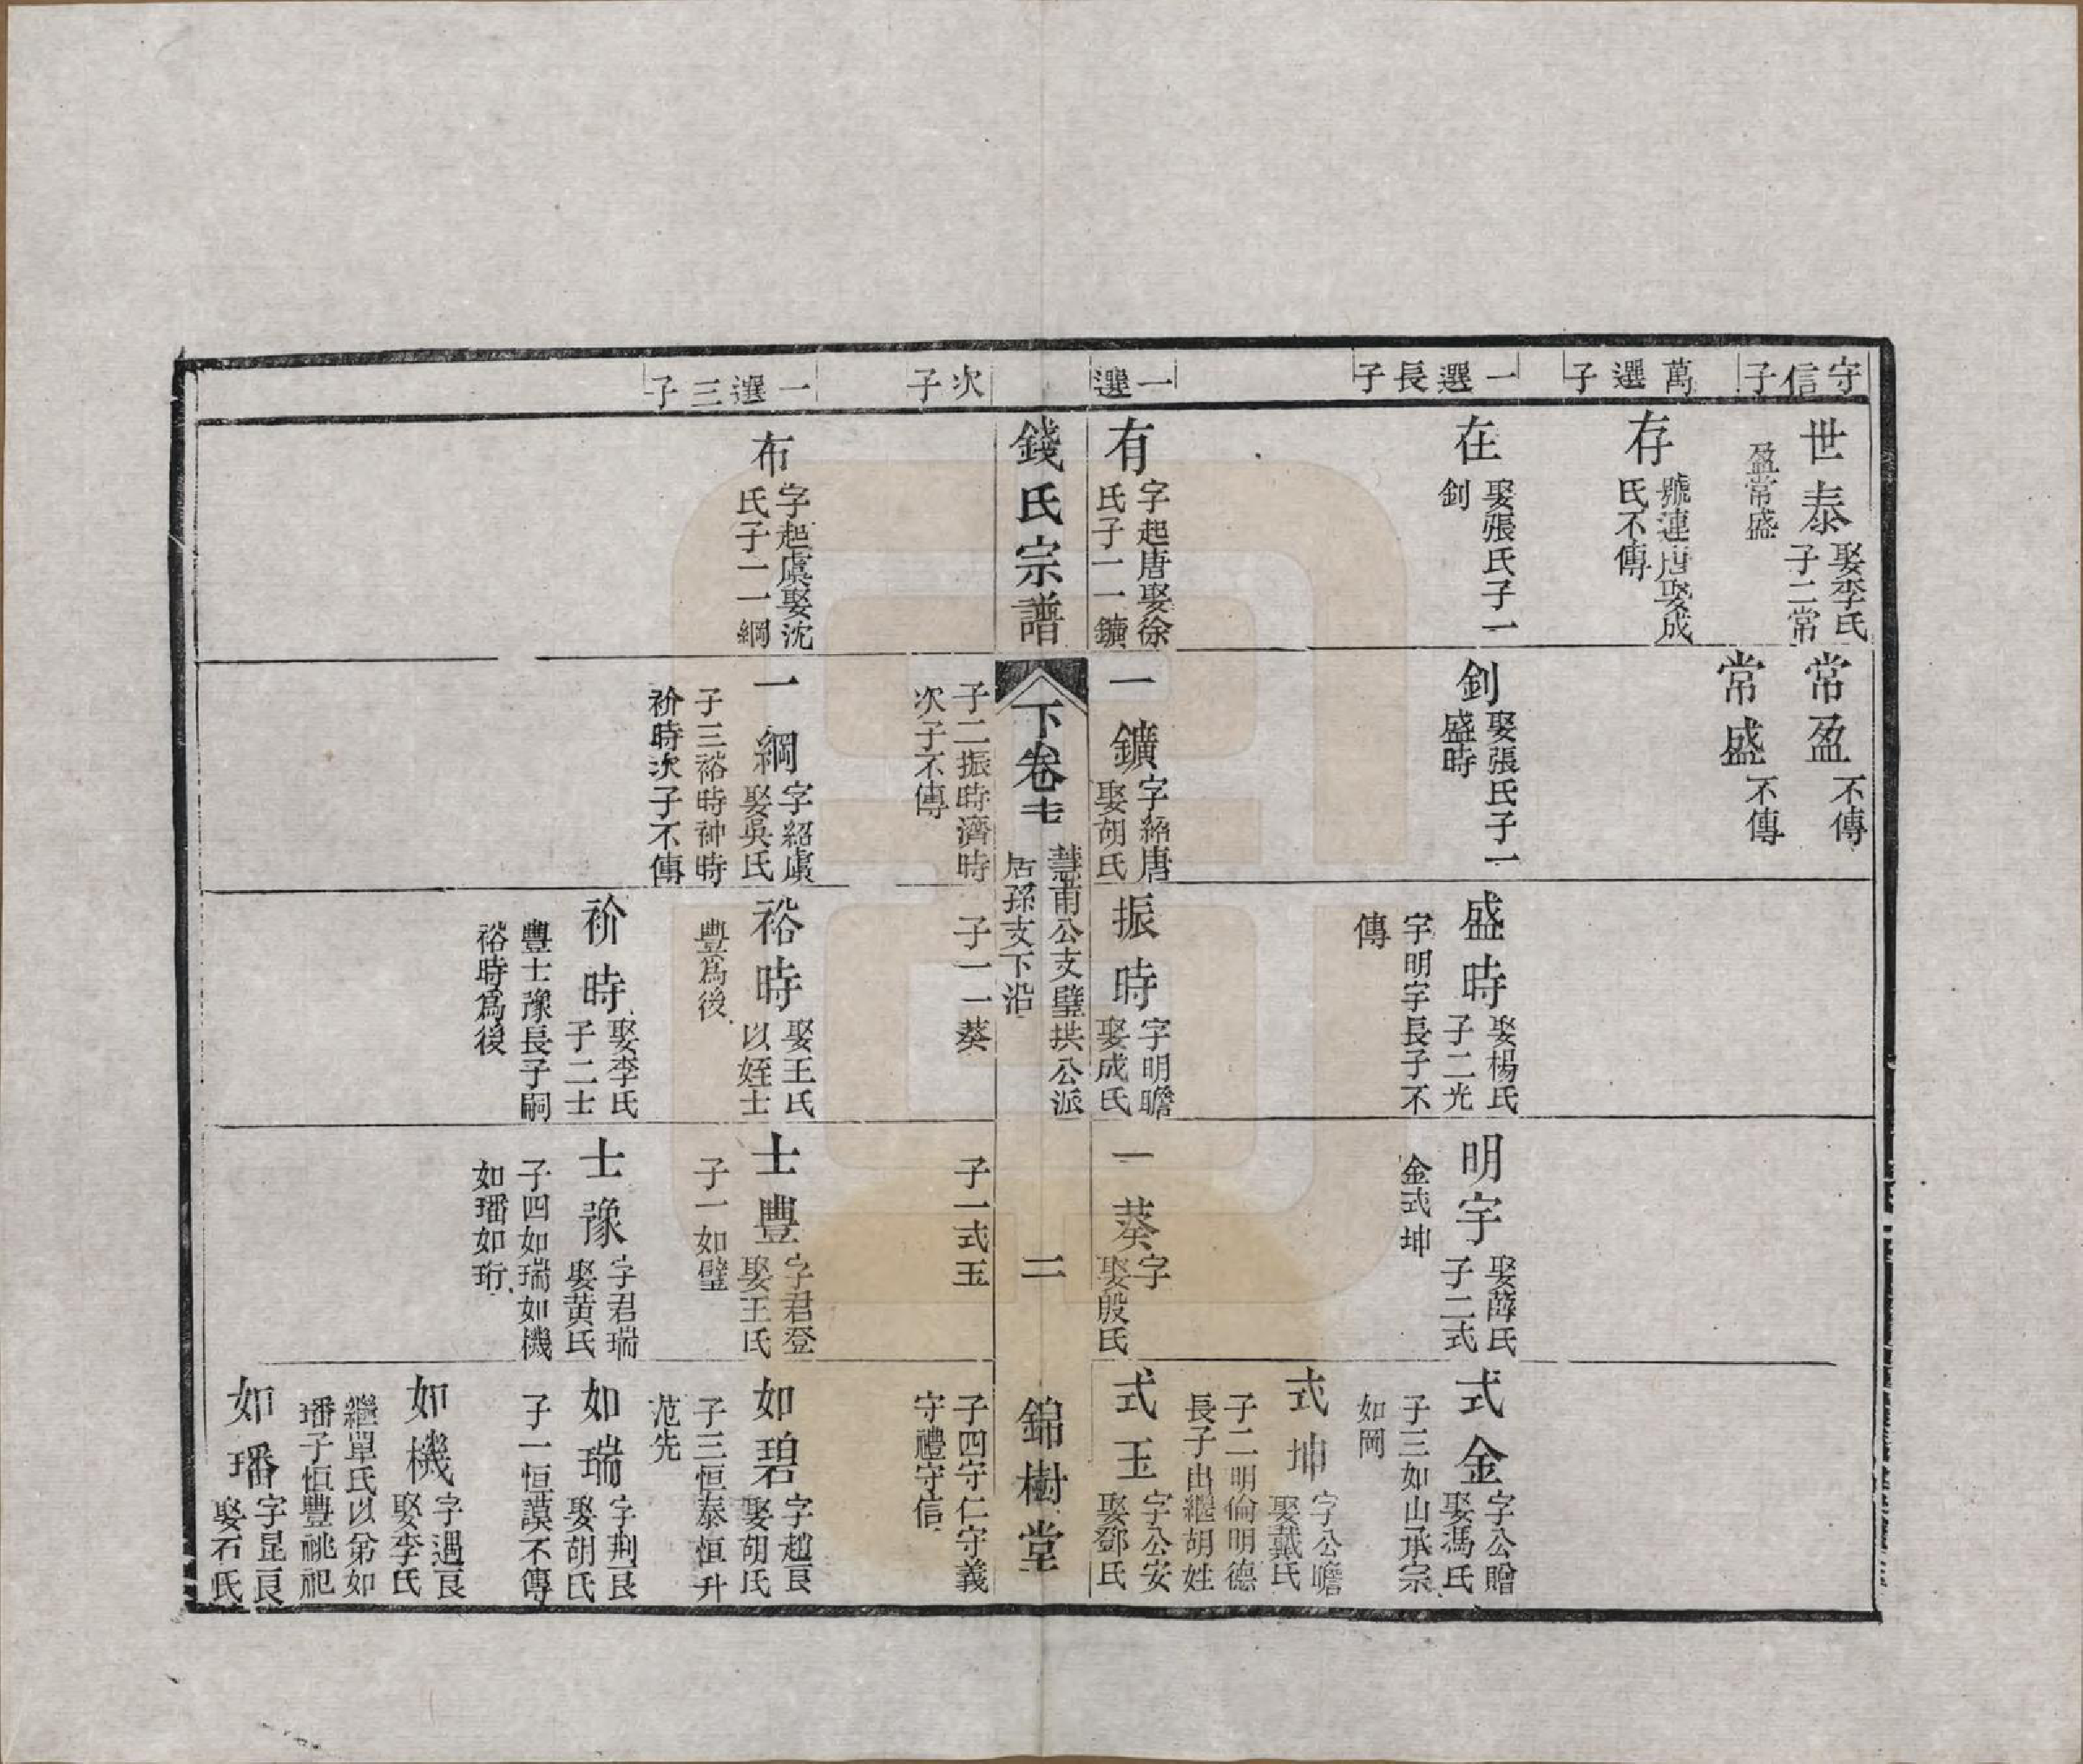 守信子
世泰
娶李氏
子二常
盈常盛
常盈
不傳
常盛
不傳
萬選子
存
號連唐娶成
氏不傳
一選長子
在
娶張氏子一
釗
釗
娶張氏子一
盛時
盛時
娶楊氏
子二光
宇明宇長子不
傳
明宇
娶薛氏
子二式
金式坤
式金
字公贈
娶馮氏
子三如山承宗
如岡
式坤
字公瞻
娶戴氏
子二明倫明德
長子出繼胡姓
一選
有
字起唐娶徐
氏子一一鑛
一鑛
字紹唐
娶胡氏
振時
字明瞻
娶成氏
一葵
字
娶殷氏
式玉
字公安
娶鄧氏
錢氏宗譜
下卷七
慧甫公支璧拱公派
居孫支下沿
二
錦樹堂
次子
子二振時濟時
次子不傳
子一一葵
子一式玉
子四守仁守義
守禮守信
一選三子
布
字起虞娶沈
氏子一一綱
一綱
字紹虞
娶吳氏
子三裕時神時
衸時次子不傳
裕時
娶王氏
以姪士
豐爲後
衸時
娶李氏
子二士
豐士豫長子嗣
裕時爲後
士豐
字君登
娶王氏
子一如璧
士豫
字君瑞
娶黄氏
子四如瑞如機
如璠如珩
如碧
字趙良
娶胡氏
子三恒泰恒升
范先
如瑞
字荆良
娶胡氏
子一恒謨不傳
如機
字遇良
娶李氏
繼單氏以弟如
璠子恒豐祧祀
如璠
字昆良
娶石氏